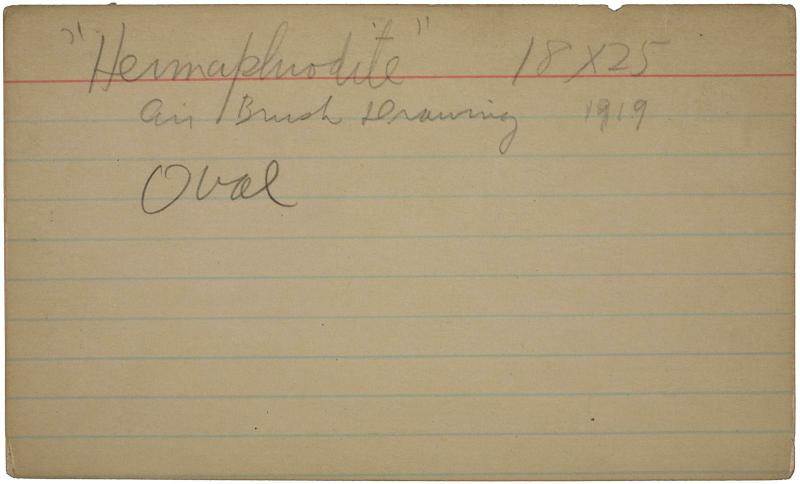 "Hermaphrodite" 18 X 25
Air Brush Drawing 1919
Oval